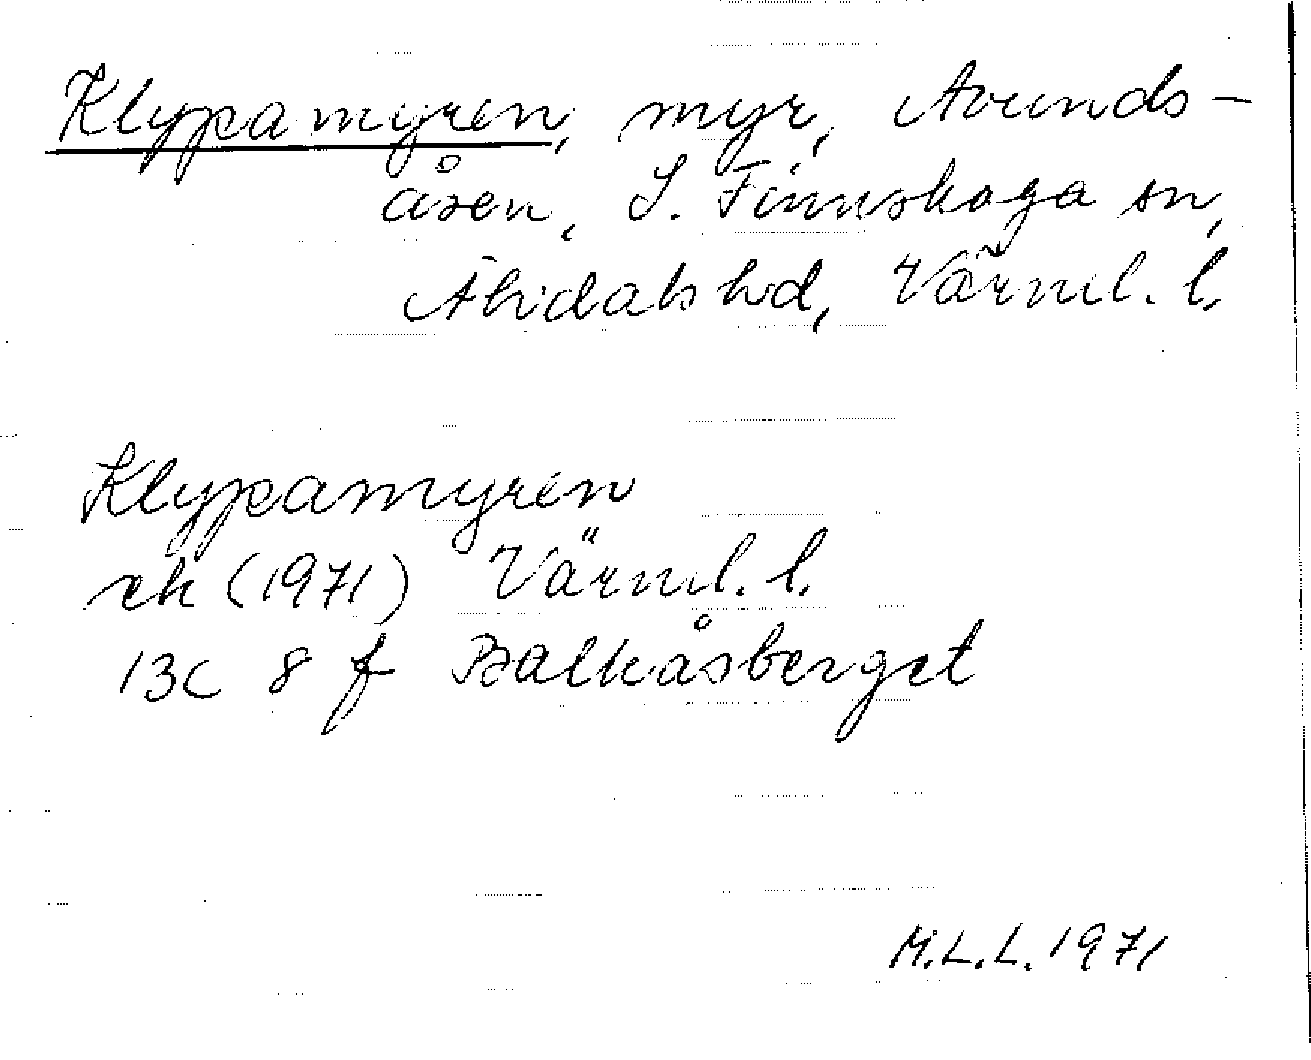 Klypamyren, myr, Avunds-
åsen, S. Finnskoga sn,
Älvdals hd, Värml. l.
Klypamyren
ek (1971) Värml. l.
13C 8 f Balkåsberget
M.L.L. 1971